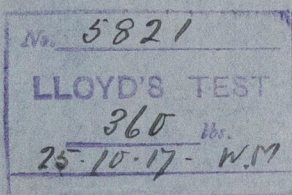 No. 5821
LLOYD'S TEST
360 lbs.
25-10-17- W.M